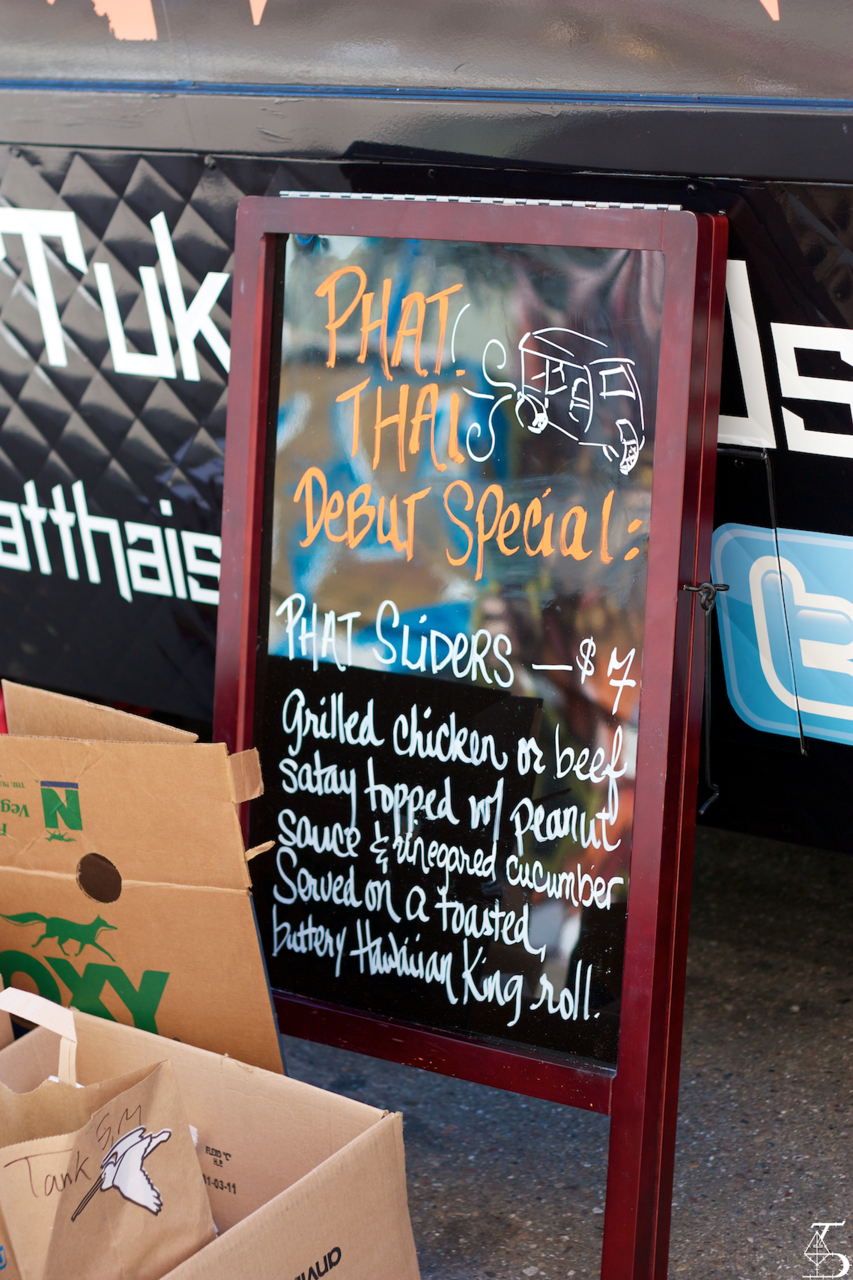 Tuk
Us
atthais
PHAT
THAI
DEBUT SPECIAL:
PHAT SLIDERS — $7
Grilled chicken or beef
satay topped w/ Peanut
sauce & vinegared cucumber
Served on a toasted,
buttery Hawaiian King roll.
N
Veg
OXY
Tank
S,M
FLEXO °C
11-03-11
anvil